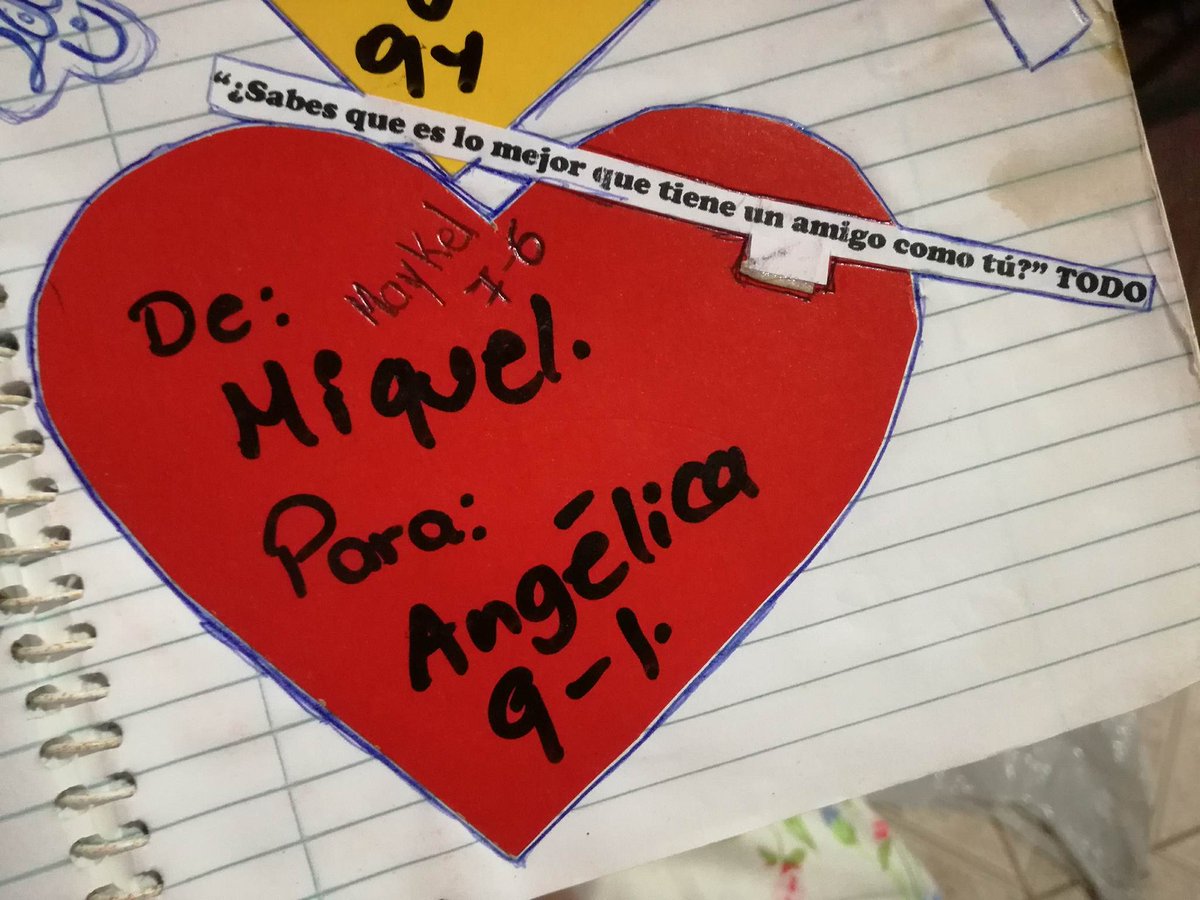 94
“¿Sabes que es lo mejor que tiene un amigo como tú?” TODO
Maykel
7-6
De:
Miguel.
Para:
Angélica
9-1.